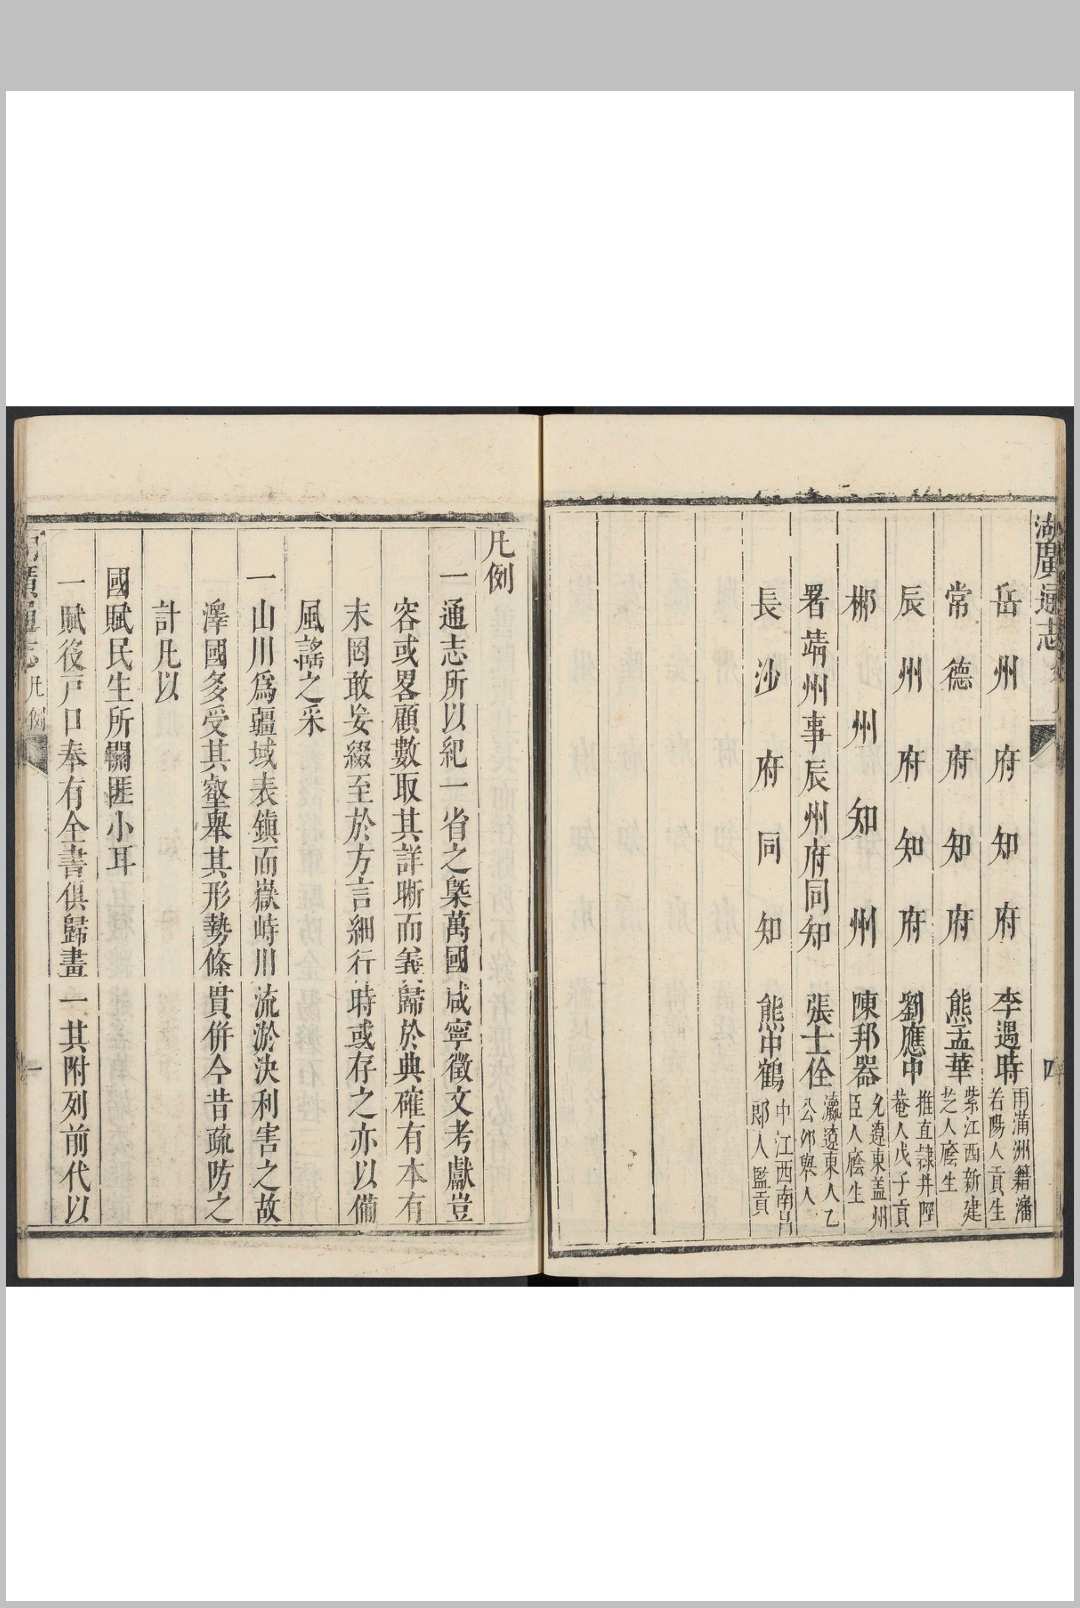 湖廣通志
四
岳州府知府李遇時雨蒲洲籍瀋若陽人貢生
常德府知府熊孟華紫江西新建芝人廕生
辰州府知府劉應中推直隷井陘菴人戊子貢
郴州知州陳邦器允遼東盖州臣人廕生
署靖州事辰州府同知張士佺瀛遼東人乙公卯舉人
長沙府同知熊中鶴中江西南昌郞人監貢
凡例
一通志所以紀一省之槩萬國咸寧徵文考獻豈
容或畧顧數取其詳晰而義歸於典確有本有
末罔敢妄綴至於方言細行時或存之亦以備
風謠之采
一山川爲疆域表鎭而嶽峙川流淤決利害之故
澤國多受其壑舉其形勢條貫併今昔疏防之
計凡以
國賦民生所關匪小耳
一賦役戸口奉有全書俱歸畫一其附列前代以
湖廣通志 凡例 一